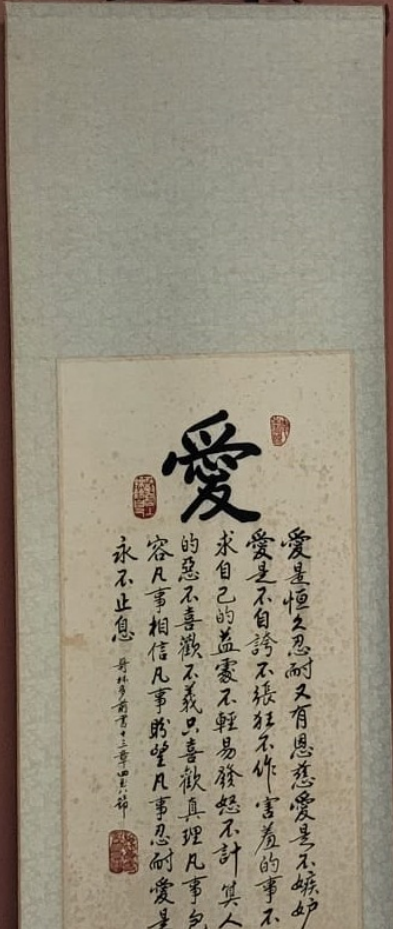 愛
愛是恒久忍耐又有恩慈愛是不嫉妒
愛是不自誇不張狂不作害羞的事不
求自己的益處不輕易發怒不計算人
的惡不喜歡不義只喜歡真理凡事包
容凡事相信凡事盼望凡事忍耐愛是
永不止息
哥林多前書十三章四至八節